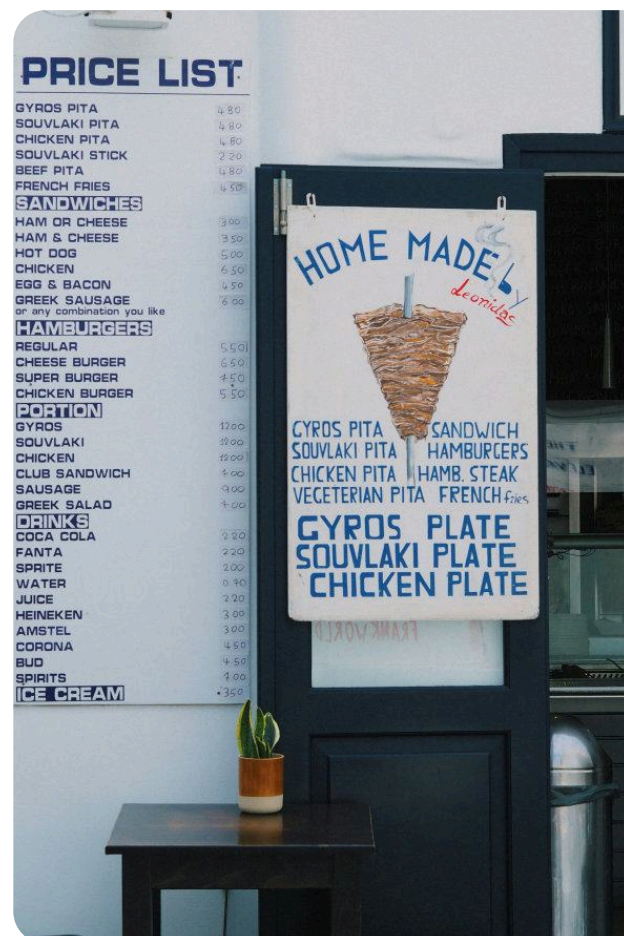 PRICE LIST
GYROS PITA 4 80
SOUVLAKI PITA 4 80
CHICKEN PITA 4 80
SOUVLAKI STICK 2 20
BEEF PITA 4 80
FRENCH FRIES 4 50
SANDWICHES
HAM OR CHEESE 3 00
HAM & CHEESE 3 50
HOT DOG 5 00
CHICKEN 6 50
EGG & BACON 4 50
GREEK SAUSAGE 6 00
or any combination you like
HAMBURGERS
REGULAR 5 50
CHEESE BURGER 6 50
SUPER BURGER
CHICKEN BURGER 5 50
PORTION
GYROS 12 00
SOUVLAKI
CHICKEN 12 00
CLUB SANDWICH
SAUSAGE 9 00
GREEK SALAD
DRINKS
COCA COLA 2 20
FANTA 2 20
SPRITE 2 00
WATER 0 70
JUICE 2 20
HEINEKEN 3 00
AMSTEL 3 00
CORONA 4 50
BUD 4 50
SPIRITS
ICE CREAM 3 50
HOME MADE by
Leonidas
GYROS PITA SANDWICH
SOUVLAKI PITA HAMBURGERS
CHICKEN PITA HAMB. STEAK
VEGETERIAN PITA FRENCH fries
GYROS PLATE
SOUVLAKI PLATE
CHICKEN PLATE
FRANK WORLD